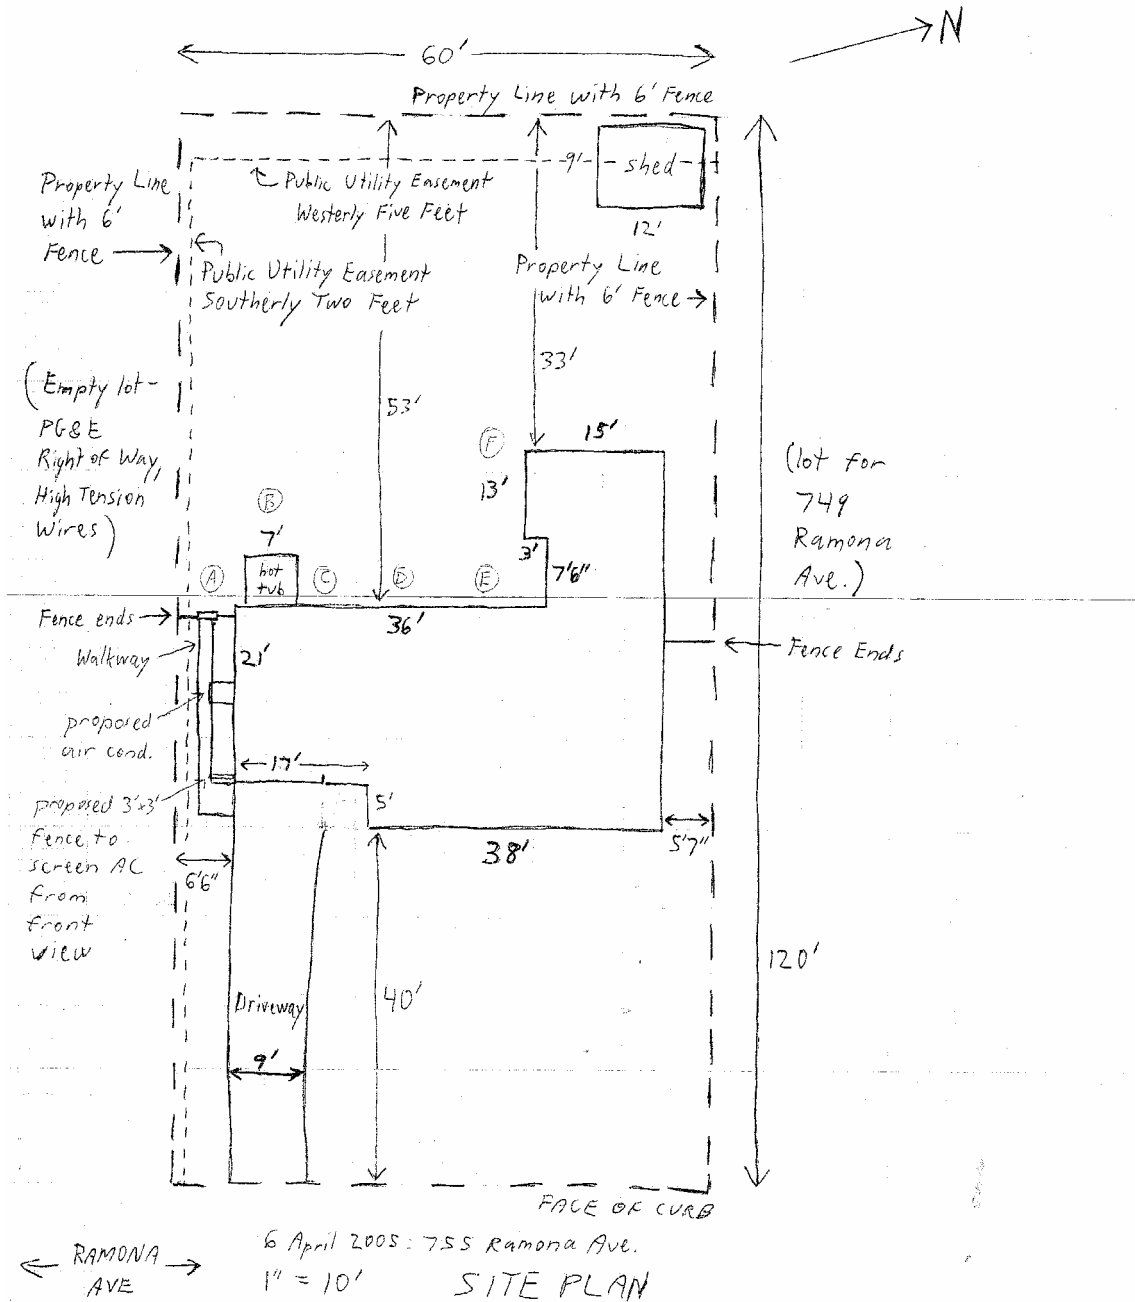 N
60'
Property Line with 6' Fence
9'
shed
12'
Public Utility Easement
Westerly Five Feet
Property Line
with 6'
Fence
Public Utility Easement
Southerly Two Feet
Property Line
with 6' Fence
33'
53'
(Empty lot-
PG&E
Right of Way,
High Tension
Wires)
(lot for
749
Ramona
Ave.)
F
15'
13'
3'
7'6"
B
7'
hot
tub
A
C
D
E
36'
Fence ends
Walkway
21'
Fence Ends
proposed
air cond.
17'
5'
proposed 3'x3'
fence to
screen AC
from
front
view
38'
5'7"
6'6"
120'
40'
Driveway
9'
FACE OF CURB
RAMONA
AVE
6 April 2005: 755 Ramona Ave.
1" = 10'
SITE PLAN